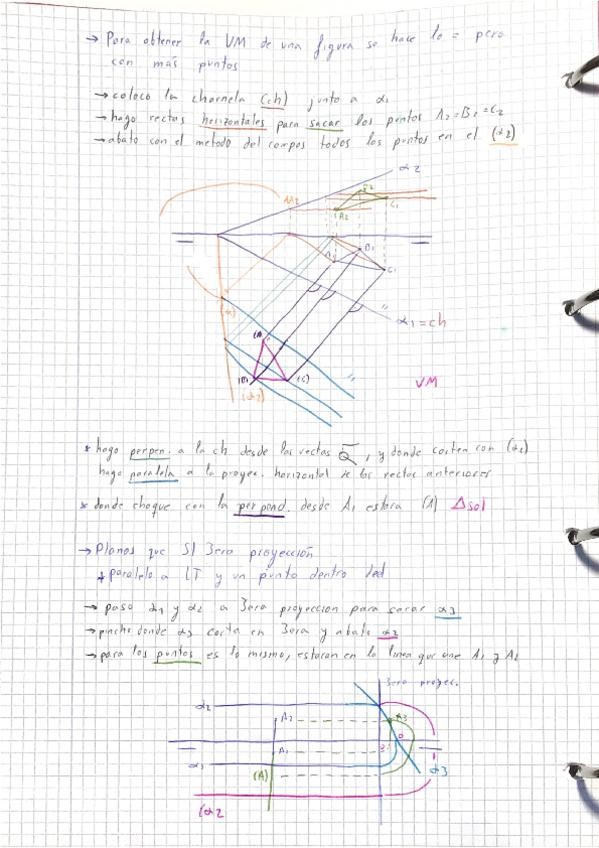 → Para obtener la VM de una figura se hace lo = pero
con más puntos
→ coloco la charnela (ch) junto a α1
→ hago rectas horizontales para sacar los puntos A2=B2=C2
→ abato con el metodo del compas todos los puntos en el (α2)
α2
AA2
B2
A2
C2
A1
B1
C1
(A)
α1=ch
(A)
(B)
(C)
(α2)
VM
* hago perpen. a la ch desde las rectas, y donde corten con (α2)
hago paralela a la proyec. horizontal de las rectas anteriores
* donde choque con la perpend. desde A1 estara (A) Δsol
→ Planos que SI 3era proyección
* paralelo a LT y un punto dentro del
→ paso α1 y α2 a 3era proyeccion para sacar α3
→ pincho donde α3 corta en 3era y abato α2
→ para los puntos es lo mismo, estaran en la linea que une A1 y A2
3era proyec.
α2
A2
A3
A1
α1
(A)
α3
(α2